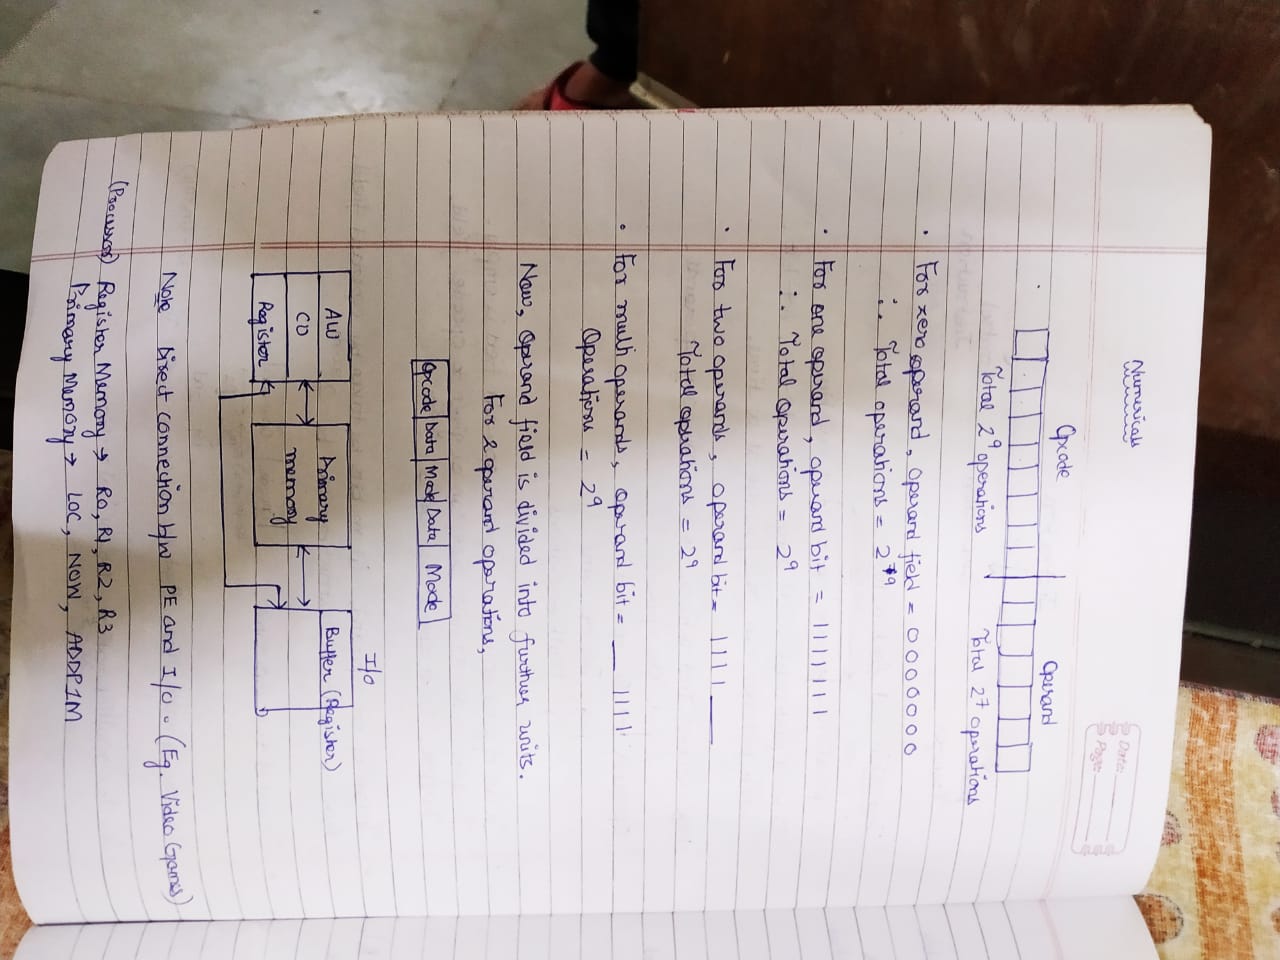 Date:
Page:
Numericals
Opcode Operand
Total 2⁹ operations Total 27 operations
• For zero operand, operand field = 0000000
∴ Total operations = 2⁹
• For one operand, operand bit = 1111111
∴ Total operations = 2⁹
• For two operands, operand bit = 1111___
Total operations = 2⁹
• For multi operands, operand bit = __ 1111
Operations = 2⁹
Now, Operand field is divided into further units.
For 2 operand operations,
Opcode Data Mode Data Mode
I/O
ALU Primary Buffer (Register)
CU memory
Register
Note Direct connection b/w PE and I/O. (Eg. Video Games)
(Processor) Register Memory → R0, R1, R2, R3
Primary Memory → LOC, NOW,